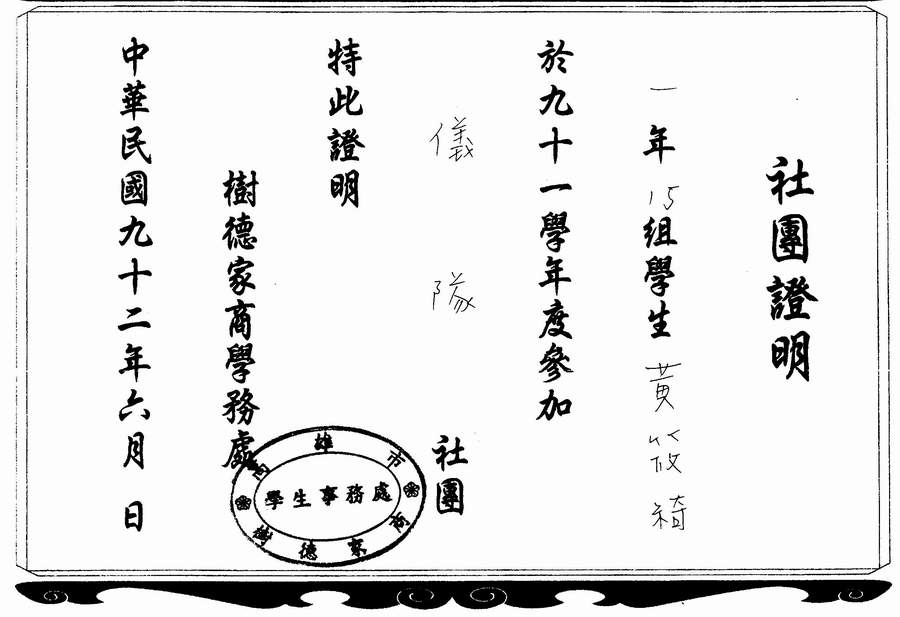 社團證明
一年15組學生黃筱裿
於九十一學年度參加
儀隊社團
特此證明
樹德家商學務處
中華民國九十二年六月 日
高雄市
學生事務處
樹德家商